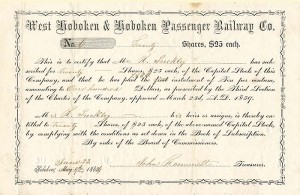 West Hoboken & Hoboken Passenger Railway Co.
No. Twenty Shares, $25 each.
This is to certify that M H. has sub-
scribed for Twenty Shares, $25 each, of the Capital Stock of this
Company, and that he has paid the first instalment of Ten per centum,
amounting to Dollars, as prescribed by the Third Section
of the Charter of the Company, approved in March 23d, A.D. 1859.
M H. his heirs or assigns, is thereby en-
titled to Shares, of $25 each, of the above-named Capital Stock,
by complying with the conditions as set down in the Book of Subscription.
By order of the Board of Directors.
Hoboken, May 186
John Treasurer